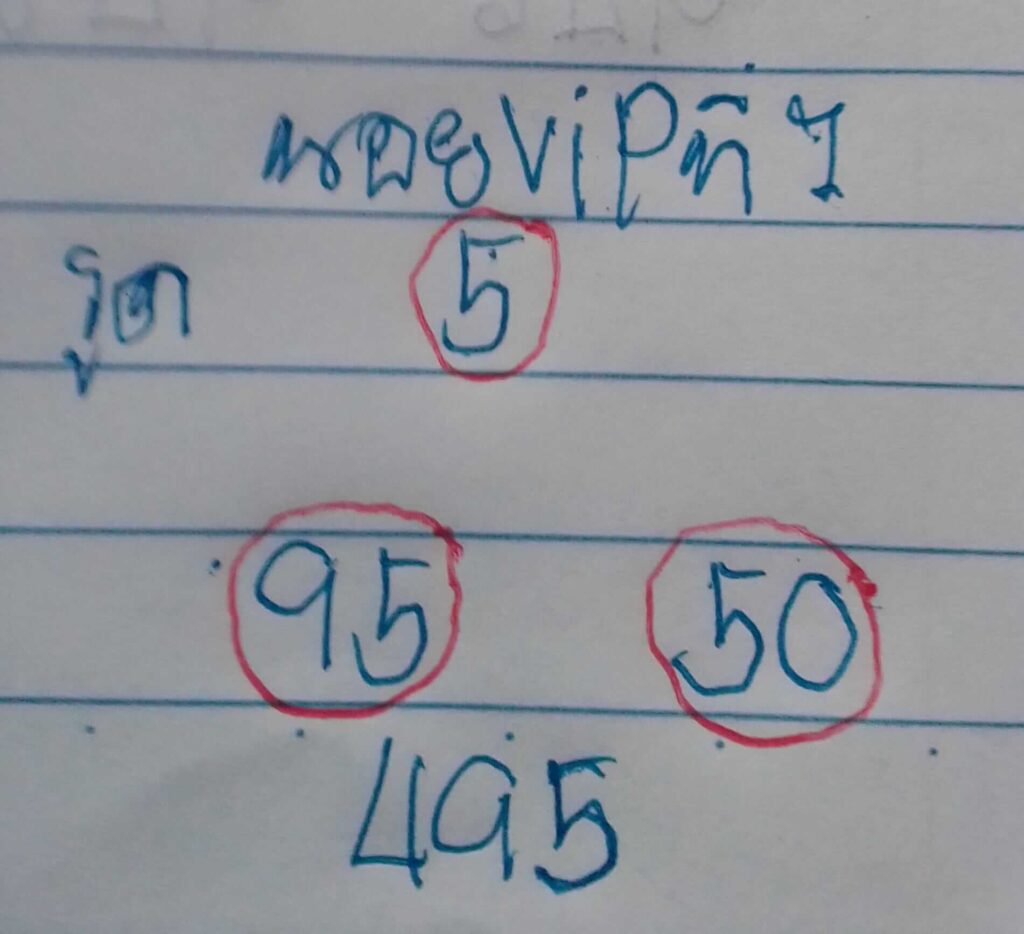 หวยVIPที่ 1
รูด 5
95 50
495